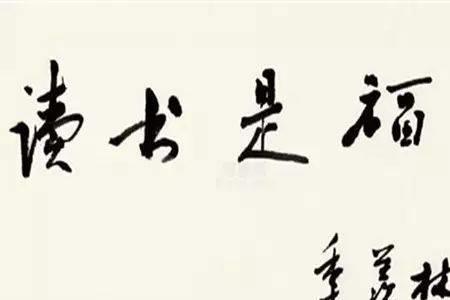 读书是福
季羡林